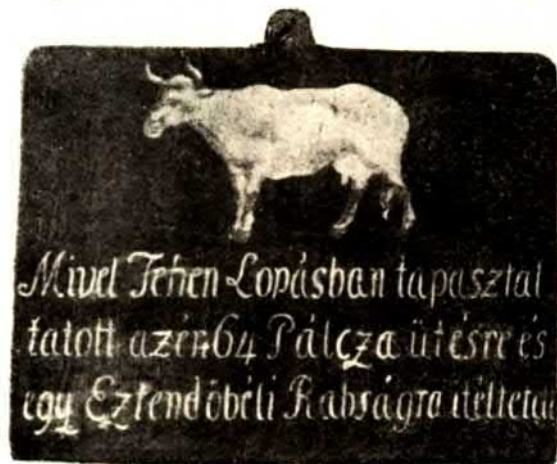 Mivel Tehen Lopásban tapasztal
tatott azért 64 Pálcza ütésre és
egy Eztendöbéli Rabságra itéltetöt